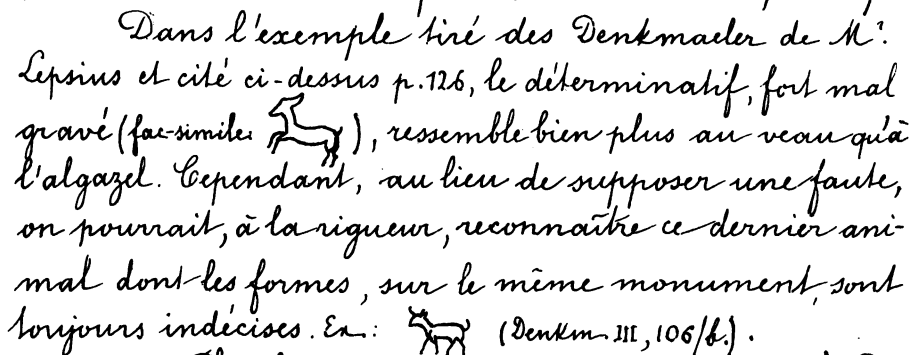 Dans l'exemple tiré des Denkmaeler de Mr.
Lepsius et cité ci-dessus p.126, le déterminatif, fort mal
gravé (fac-simile: ), ressemble bien plus au veau qu'à
l'algazel. Cependant, au lieu de supposer une faute,
on pourrait, à la rigueur, reconnaître ce dernier ani-
mal dont les formes, sur le même monument, sont
toujours indécises. Ex.: (Denkm. III, 106/b.).